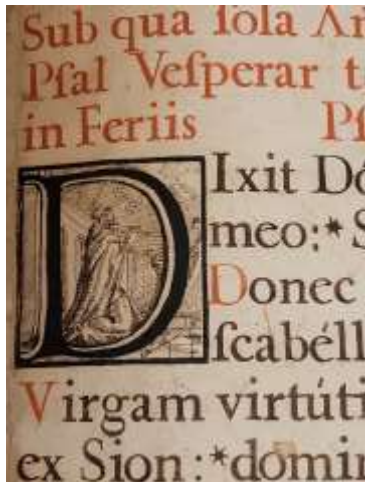 Sub qua ſola An
Pſal Veſperar t
in Feriis Pſ
DIxit Dó
meo: * S
Donec
ſcabéll
Virgam virtúti
ex Sion: * domin